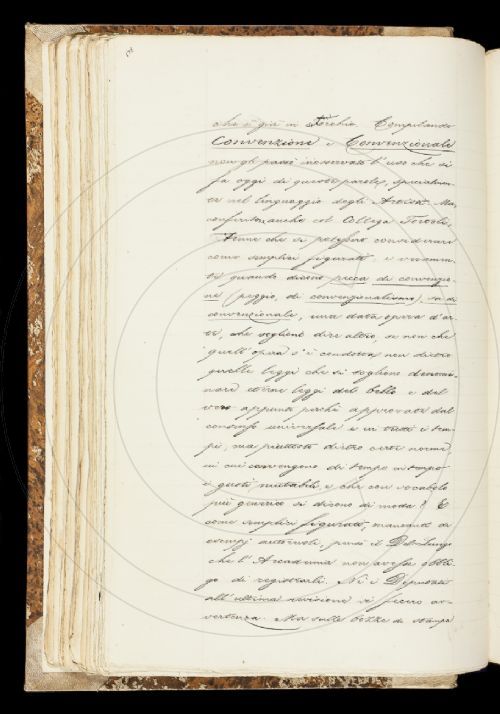 che è già in Torchio. Compilando
Convenzione e Convenzionale
non gli passò inosservato l'uso che si
fa oggi di queste parole, specialmen-
te nel linguaggio degli Artisti. Ma,
conferito anche col Collega Tortoli,
tenne che si potessero considerare
come semplici figurati; e veramen-
te quando dicono pecca di convenzio-
ne (peggio, di convenzionalismo), sa di
convenzionale, una data opera d'ar-
te, che vogliono dire altro, se non che
quell'opera s'è condotta non dietro
quelle leggi che si sogliono denomi-
nare eterne leggi del bello e del
vero appunto perché approvate dal
consenso universale e in tutti i tem-
pi, ma piuttosto dietro certe norme,
in cui convengono di tempo in tempo
i gusti mutabili, e che con vocabolo
più generico si dicono di moda? E
come semplici figurati, mancando di
esempi autorevoli, pensò il Del-Lungo
che l'Accademia non avesse obbli-
go di registrarli. Né i Deputati
all'ultima revisione vi fecero av-
vertenza. Ma sulle bozze di stampa